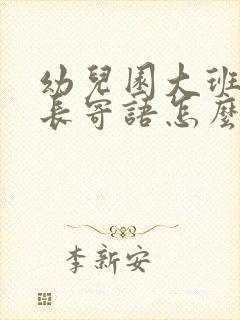 幼兒園大班
長寄語怎麼
李新安